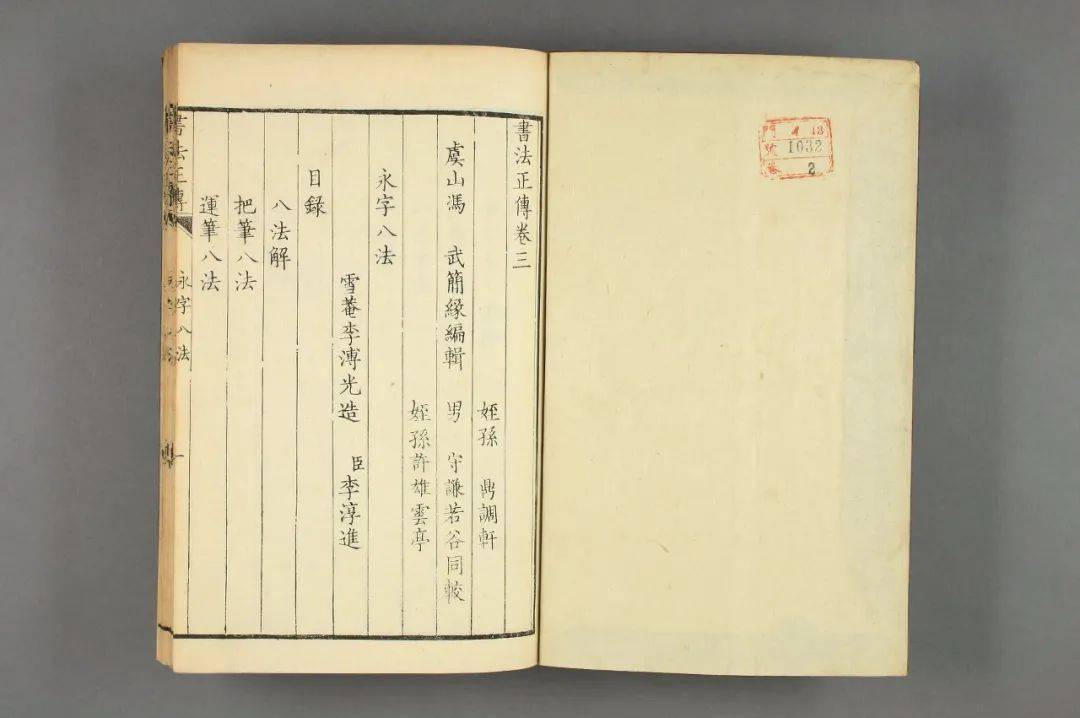 書法正傳卷三
姪孫 鼎調軒
虞山馮 武簡緣編輯 男 守謙若谷同較
姪孫許雄雲亭
永字八法
雪菴李溥光造 臣李淳進
目錄
八法解
把筆八法
運筆八法
書法正傳
永字八法
一
門 4 18
號 1032
卷 2